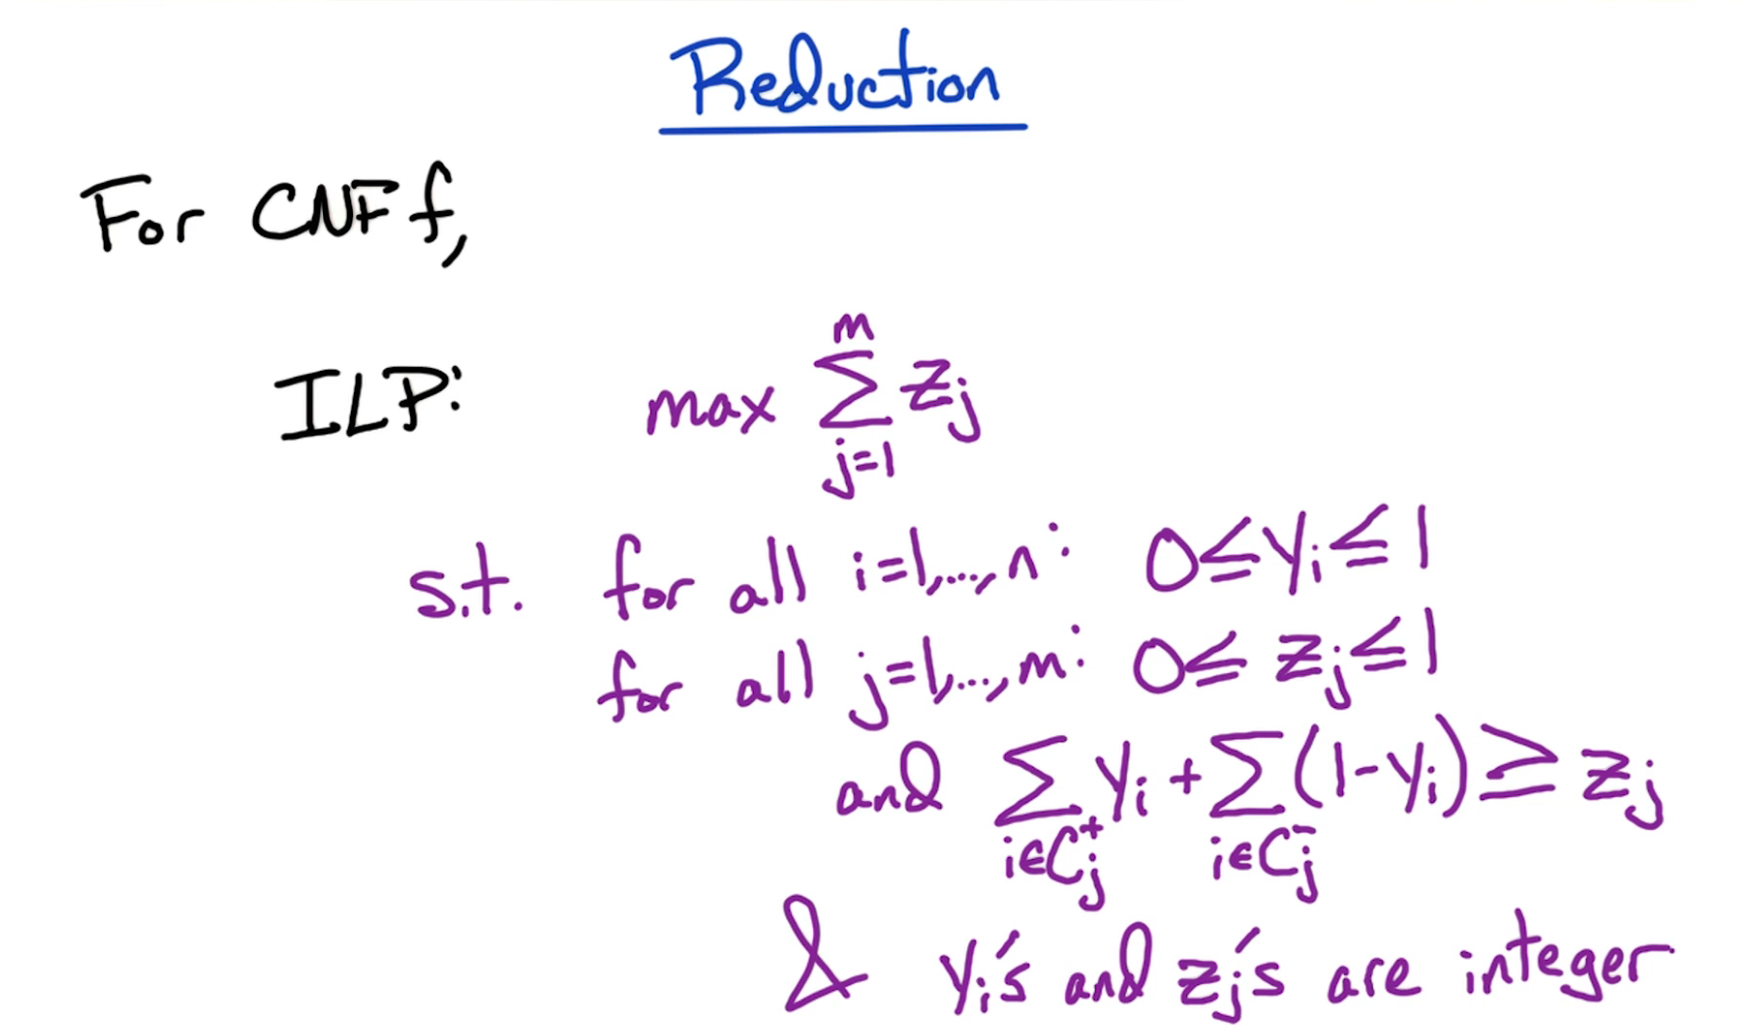 Reduction
For CNF f,
ILP: max ∑_{j=1}^{m} z_j
s.t. for all i=1,...,n: 0≤y_i≤1
for all j=1,...,m: 0≤z_j≤1
and ∑_{i∈C_j^+} y_i + ∑_{i∈C_j^-} (1-y_i) ≥ z_j
& y_i's and z_j's are integer